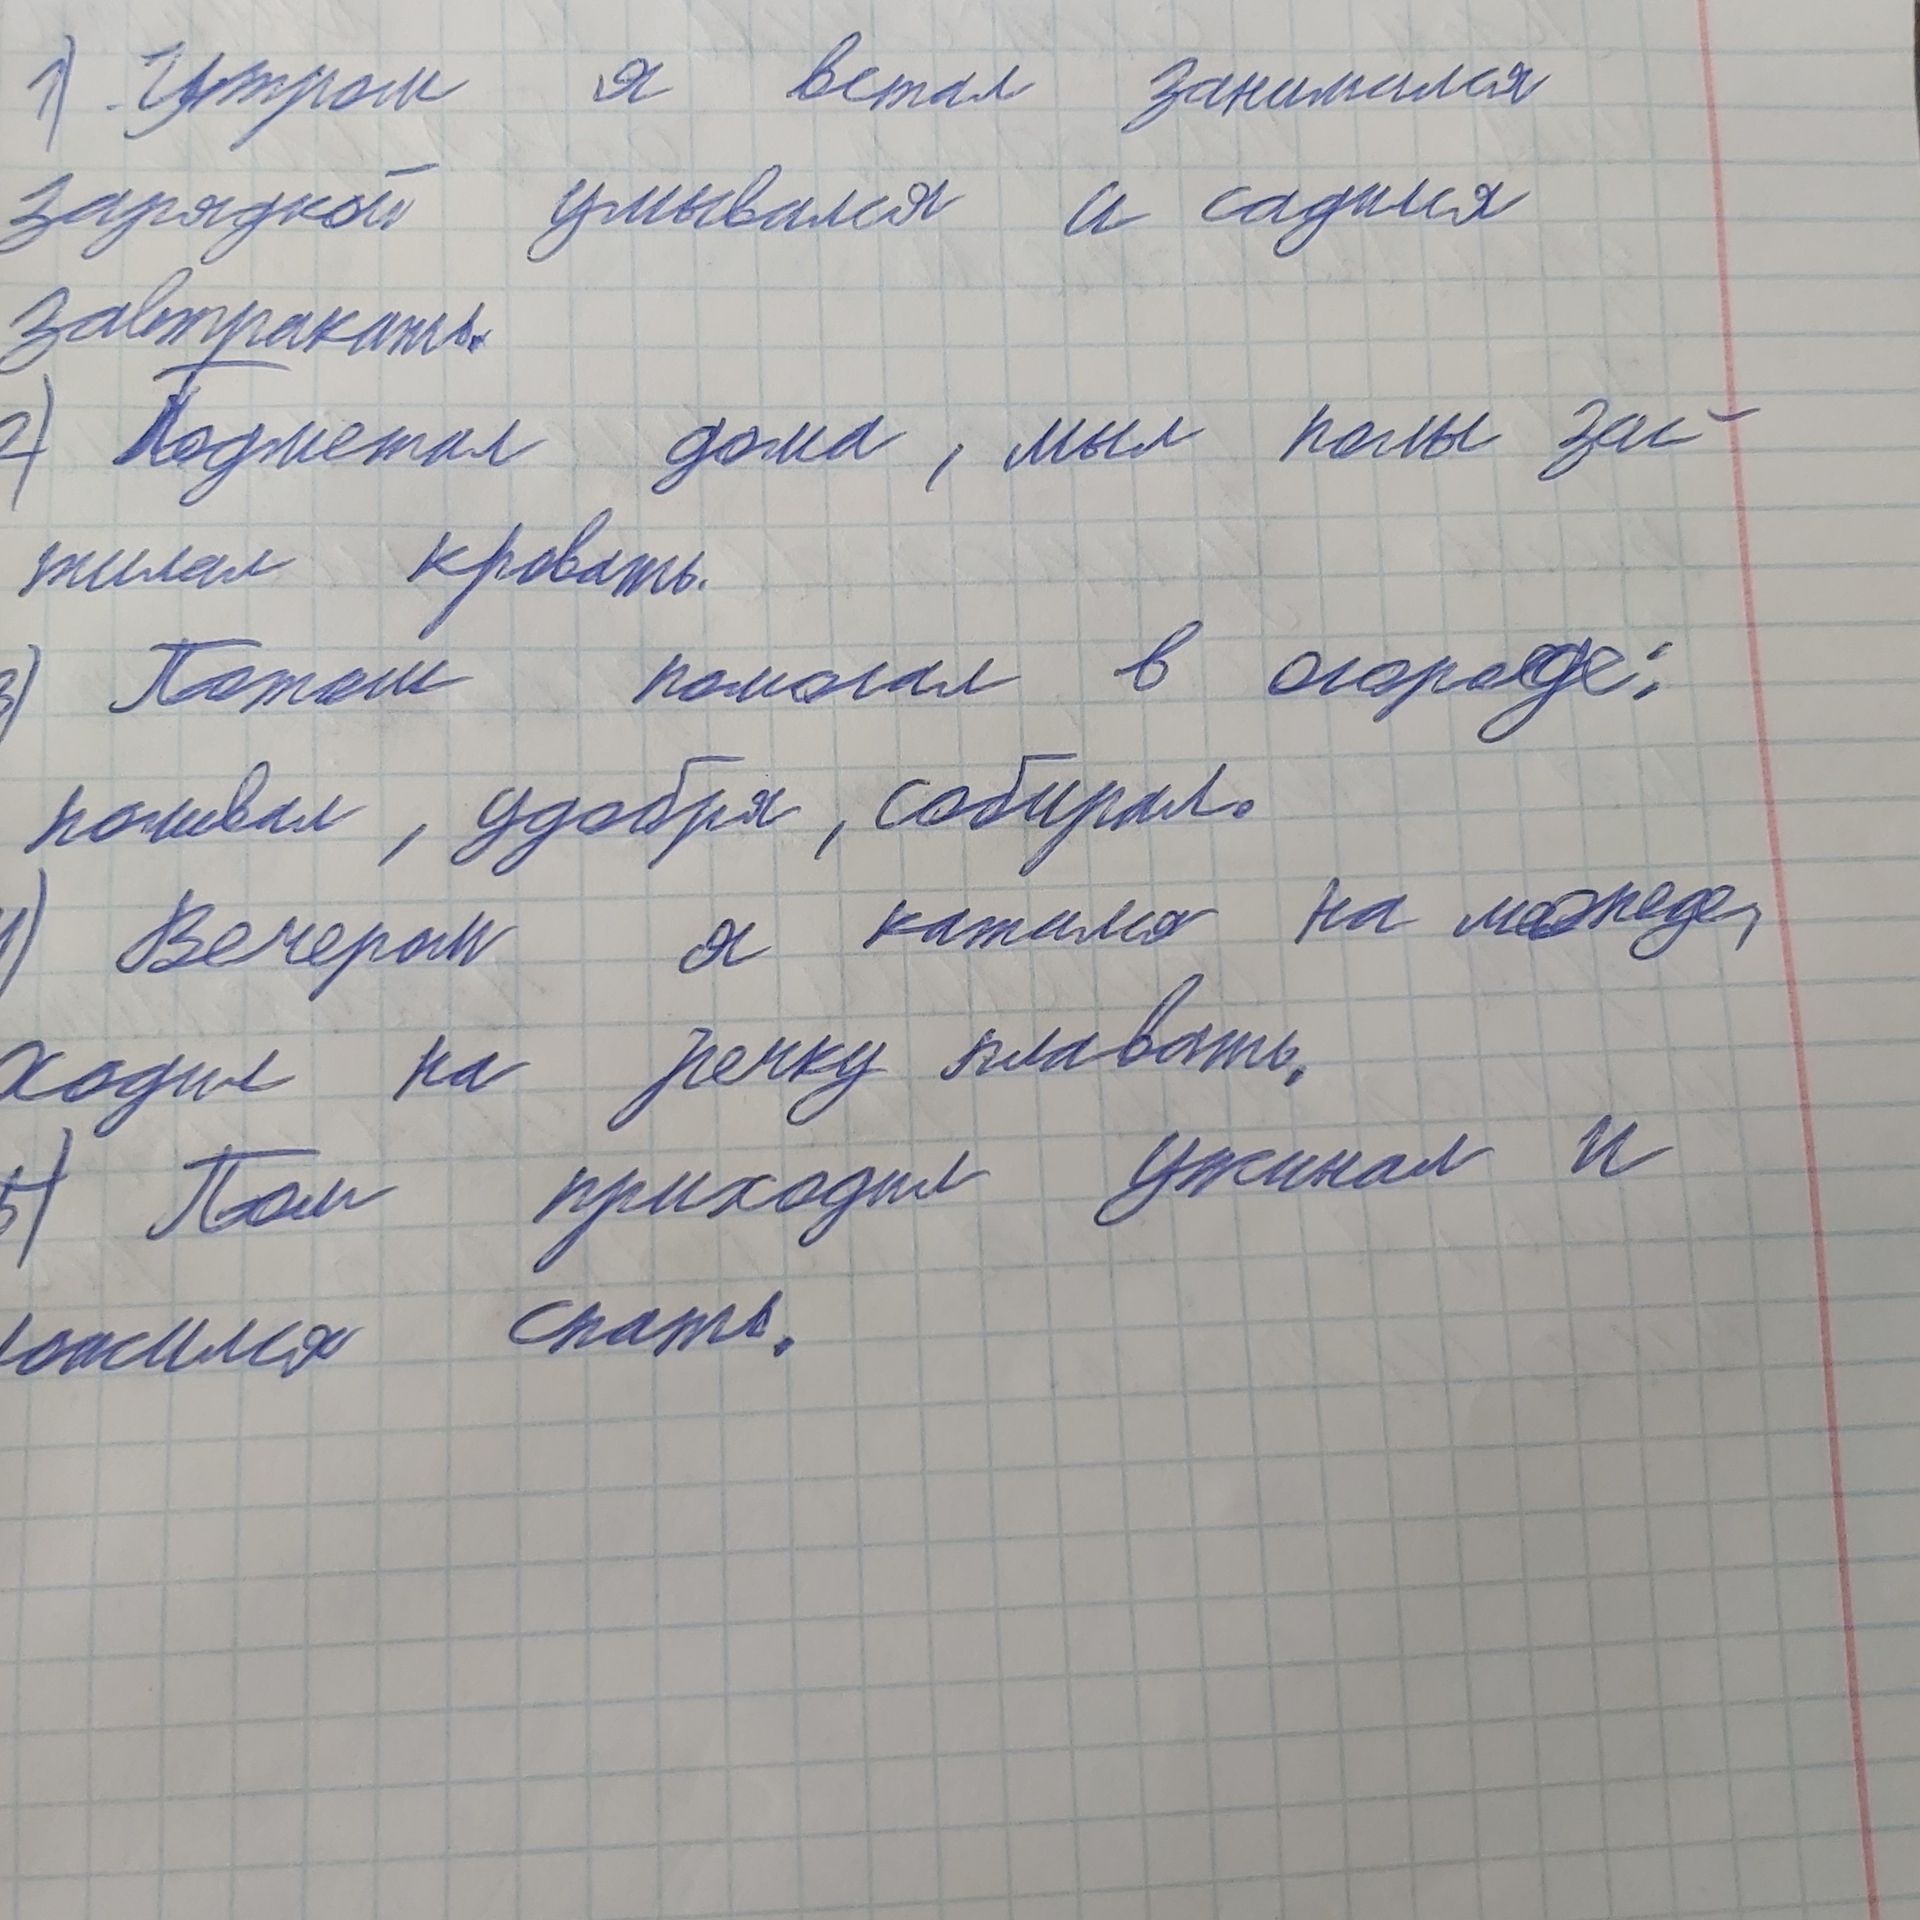 1) Утром я встал занимался
зарядкой умывался и садился
завтракать.
2) Подметал дома, мыл полы зас-
тилал кровать.
3) Потом помогал в огороде:
поливал, удобря, собирал.
4) Вечером я катался на мопеде,
ходил на речку плавать.
5) Пом приходил ужинал и
ложился спать.